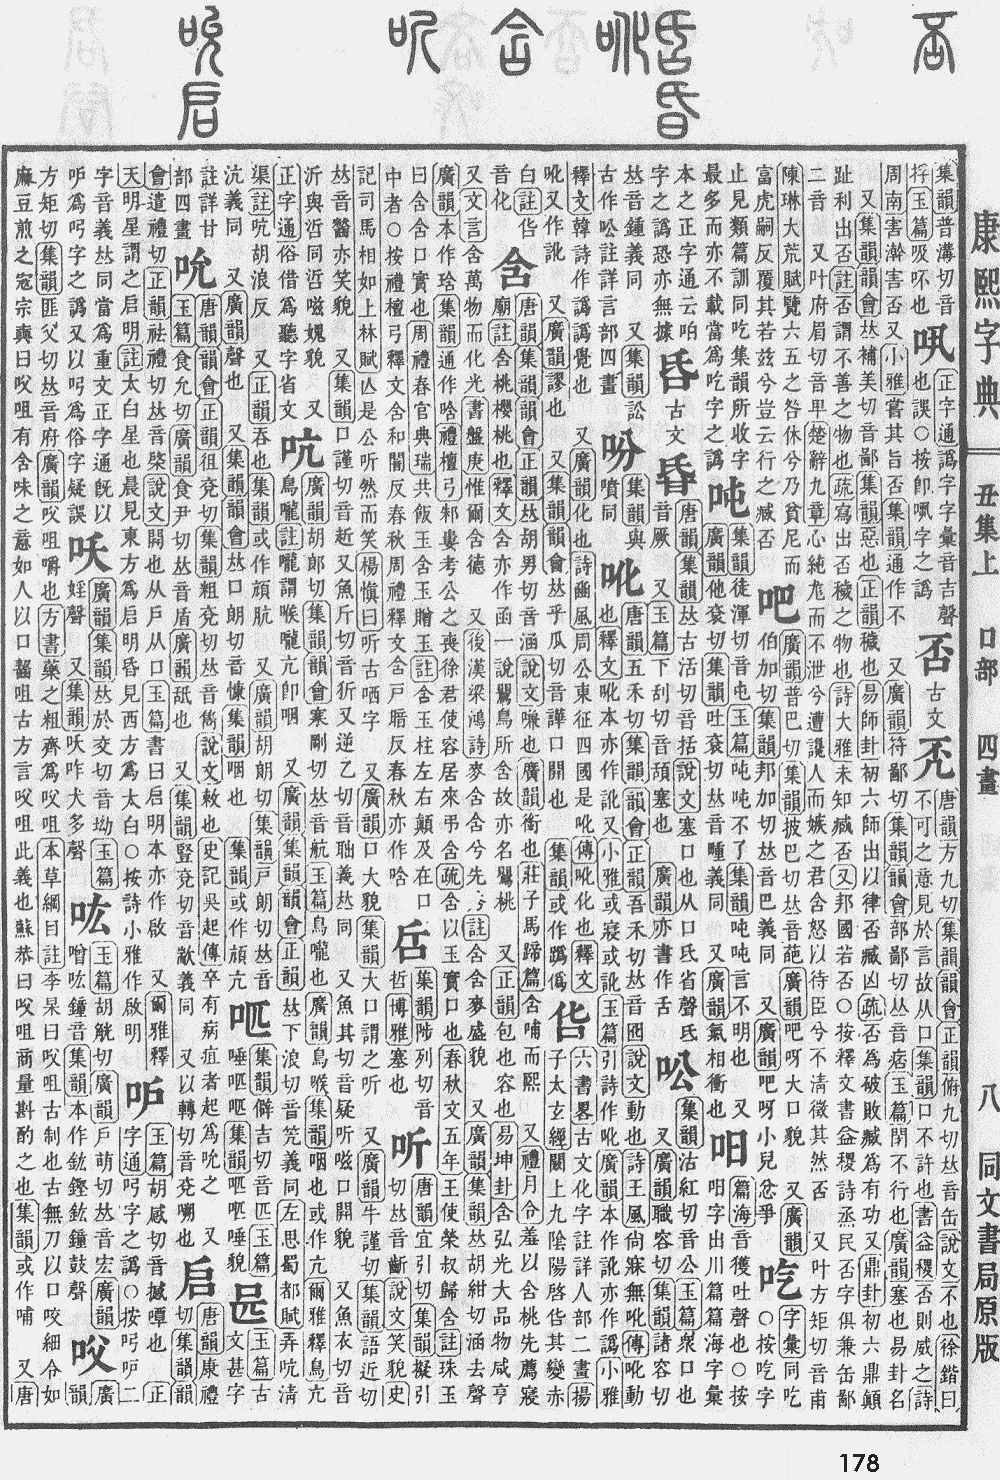 康熙字典
丑集上 口部 四畫
八 同文書局原版
集韻普溝切音
捊玉篇吸㕻也
正字通譌字字彙音吉聲
誤○按卽㖃字之譌
否 古文
唐韻方九切集韻韻會正韻俯九切𠀤音缶說文不也徐鍇曰
不可之意見於言故从口集韻口不許也書益稷否則威之詩
周南害澣害否又小雅嘗其旨否集韻通作不 又廣韻符鄙切集韻韻會部鄙切𠀤音痞玉篇閉不行也廣韻塞也易卦名
又集韻韻會𠀤補美切音鄙集韻惡也正韻穢也易師卦初六師出以律否臧凶疏否爲破敗臧爲有功又鼎卦初六鼎顚
趾利出否註否謂不善之物也疏寫出否穢之物也詩大雅未知臧否又邦國若否○按釋文書益稷詩烝民否字俱兼缶鄙
二音 又叶府眉切音𤰞楚辭九章心純庬而不泄兮遭讒人而嫉之君含怒以待臣兮不淸徵其然否 又叶方矩切音甫
陳琳大荒賦覽六五之咎休兮乃貧尼而
富虎嗣反覆其若茲兮豈云行之臧否
吧
廣韻普巴切集韻披巴切𠀤音葩廣韻吧呀大口貌 又廣韻
伯加切集韻邦加切𠀤音巴義同 又廣韻吧呀小兒忿爭
字彙同吃
○按吃字
止見類篇訓同吃集韻所收字
最多而亦不載當爲吃字之譌
吨
集韻徒渾切音屯玉篇吨吨不了集韻吨吨言不明也 又
廣韻他衮切集韻吐衮切𠀤音疃義同 又廣韻氣相衝也
篇海音獲吐聲也○按
字出川篇篇海字彙
本之正字通云咱
字之譌恐亦無據
古文
唐韻集韻𠀤古活切音括說文塞口也从口氐省聲氐
音厥 又玉篇下刮切音頢塞也 廣韻亦書作舌
㕬
集韻沽紅切音公玉篇衆口也
又廣韻職容切集韻諸容切
𠀤音鍾義同 又集韻訟
古作㕬註詳言部四畫
吩
集韻與
噴同
吪
唐韻五禾切集韻韻會正韻吾禾切𠀤音囮說文動也詩王風尙寐無吪傳吪動
也釋文吪本亦作訛又小雅或寢或訛玉篇引詩作吪廣韻本作訛亦作譌小雅
釋文韓詩作譌譌覺也 又廣韻化也詩豳風周公東征四國是吪傳吪化也釋文
吪又作訛 又廣韻謬也 又集韻韻會𠀤乎瓜切音譁口開也 集韻或作
六書畧古文化字註詳人部二畫揚
子太玄經闔上九陰陽啓 其變赤
白註
音化
含
唐韻集韻韻會正韻𠀤胡男切音涵說文嗛也廣韻銜也莊子馬蹄篇含哺而熙 又正韻包也容也易坤卦含弘光大品物咸亨
廟註含桃櫻桃也釋文含亦作函一說鸎鳥所含故亦名鸎桃 又禮月令羞以含桃先薦寢
又文言含萬物而化光書盤庚惟爾含德 又後漢梁鴻詩麥含含兮先 註含含麥盛貌 又廣韻集韻𠀤胡紺切涵去聲
廣韻本作琀集韻通作唅禮檀弓邾婁考公之喪徐君使容居來弔含疏含以玉實口也春秋文五年王使榮叔歸含註珠玉
曰含含口實也周禮春官典瑞共飯玉含玉贈玉註含玉柱左右顚及在口
中者○按禮檀弓釋文含和闇反春秋周禮釋文含戸暗反春秋亦作唅
集韻陟列切音
哲博雅塞也
听
唐韻宜引切集韻擬引
切𠀤音齗說文笑貌史
記司馬相如上林賦亾是公听然而笑楊愼曰听古哂字 又廣韻口大貌集韻大口謂之听 又廣韻牛謹切集韻語近切
𠀤音齗亦笑貌 又集韻口謹切音赾又魚斤切音狺又逆乙切音耴義𠀤同 又魚其切音疑听嗞口開貌 又魚衣切音
沂與哲同哲嗞媿貌 又
正字通俗借爲聽字省文
吭
廣韻胡郞切集韻韻會寒剛切𠀤音航玉篇鳥嚨也廣韻鳥喉集韻咽也或作亢爾雅釋鳥亢
鳥嚨註嚨謂喉嚨亢卽咽 又廣韻集韻韻會正韻𠀤下浪切音笐義同左思蜀都賦弄吭淸
渠註吭胡浪反 又正韻吞也集韻或作頏肮 又廣韻胡朗切集韻戸朗切𠀤音
沆義同 又廣韻聲也 又集韻韻會𠀤口朗切音慷集韻咽也 集韻或作頏亢
㕲
集韻僻吉切音匹玉篇
唾㕲㕲集韻㕲㕲唾貌
玉篇古
文甚字
註詳甘
部四畫
吮
唐韻韻會正韻徂兗切集韻粗兗切𠀤音雋說文敕也史記吳起傳卒有病疽者起爲吮之 又
玉篇食允切廣韻食尹切𠀤音盾廣韻舐也 又集韻豎兗切音歂義同 又以轉切音兗嗍也
启
唐韻康禮
切集韻韻
會遣禮切正韻袪禮切𠀤音棨說文開也从戸从口玉篇書曰启明本亦作啟 又爾雅釋
天明星謂之启明註太白星也晨見東方爲启明昏見西方爲太白○按詩小雅作啟明
玉篇胡㦿切音㦿嘾也 正
字通吗字之譌○按吗 二
字音義𠀤同當爲重文正字通旣以
爲吗字之譌又以吗爲俗字疑誤
㕭
廣韻集韻𠀤於交切音坳玉篇
婬聲 又集韻㕭咋犬多聲
吰
玉篇胡觥切廣韻戸萌切𠀤音宏廣韻
噌吰鐘音集韻本作鈜鏗鈜鍾鼓聲
咬
廣
韻
方矩切集韻匪父切𠀤音府廣韻㕮咀嚼也方書藥之粗齊爲㕮咀本草綱目註李杲曰㕮咀古制也古無刀以口咬細令如
麻豆煎之寇宗奭曰㕮咀有含味之意如人以口齧咀古方言㕮咀此義也蘇恭曰㕮咀商量斟酌之也集韻或作哺 又唐
178